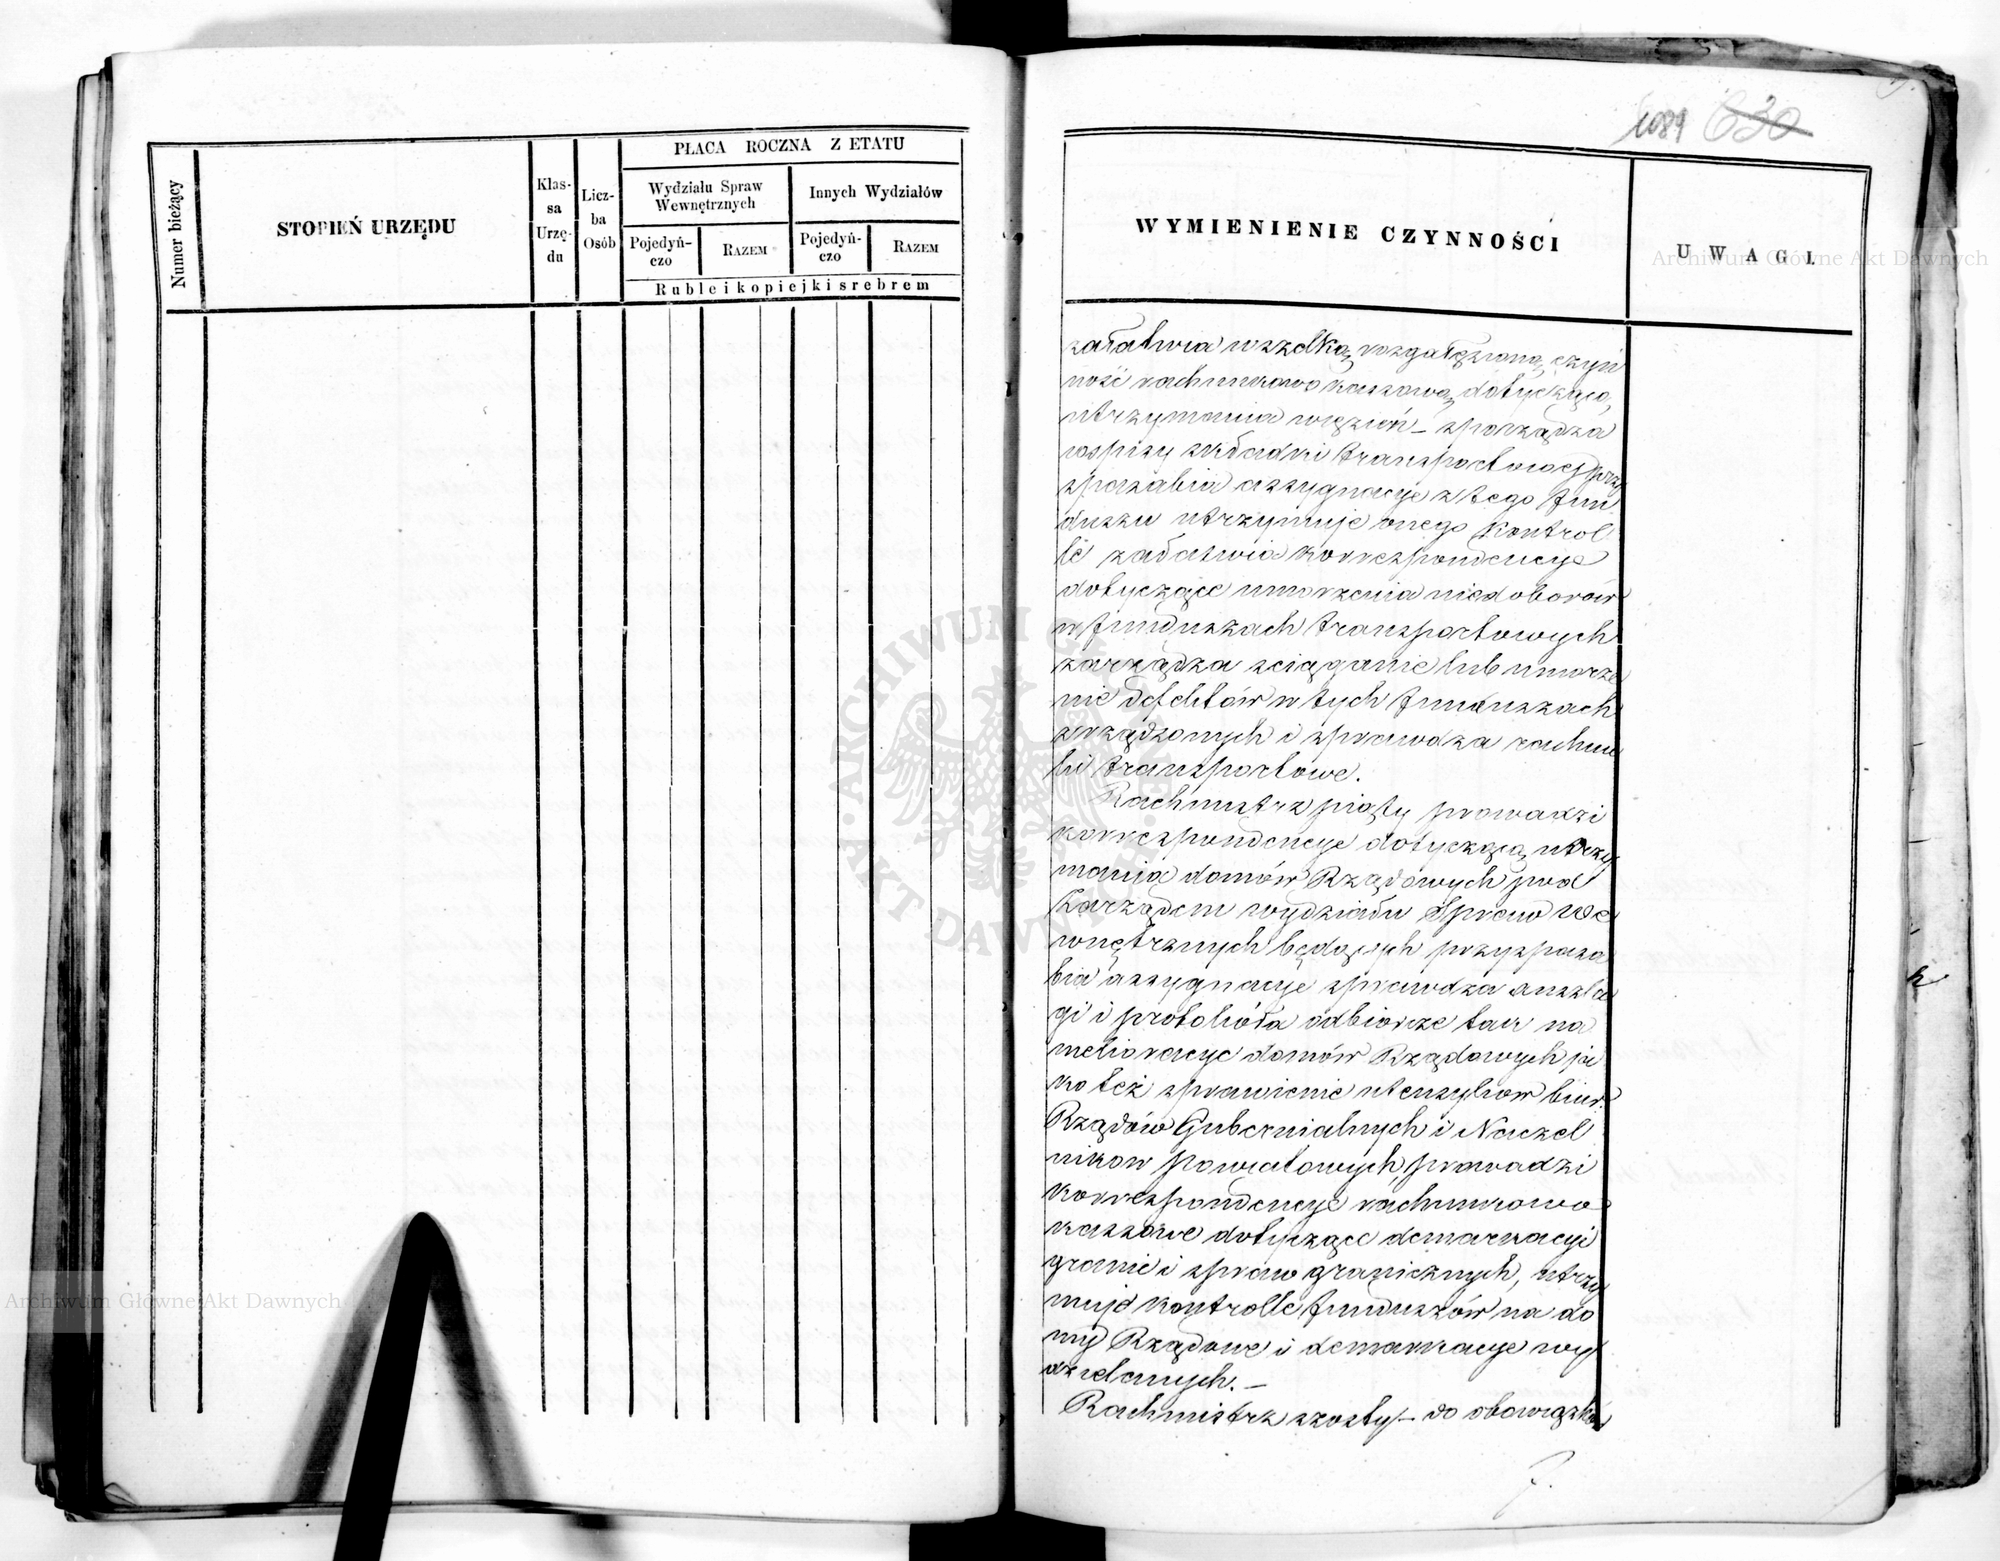 PŁACA ROCZNA Z ETATU
Numer bieżący
STOPIEŃ URZĘDU
Klas-
sa
Urzę-
du
Licz-
ba
Osób
Wydziału Spraw
Wewnętrznych
Innych Wydziałów
Pojedyń-
czo
RAZEM
Pojedyń-
czo
RAZEM
Ruble i kopiejki srebrem
1089 630
WYMIENIENIE CZYNNOŚCI
UWAGI.
załatwia wszelką rozgałęzioną czyn
ność rachunkowo kassową dotyczącą
utrzymania więzień – sporządza
rospisy składki transportowej przy
sposabia assygnacye z tego fun
duszu utrzymuje onego Kontrol
lę załatwia korrespondencye
dotyczące umorzenia niedoborów
w funduszach transportowych
zarządza sciąganie lub umorze
nie defektów w tych funduszach
zrządzonych i sprawdza rachun
ki transportowe.
Rachmistrz piąty prowadzi
korrespondencye dotyczącą utrzy
mania domów Rządowych pod
Zarządem wydziału Spraw We
wnętrznych będących przysposa
bia assygnacye sprawdza anszla
gi i protokóła odbiorcze tak na
melioracye domów Rządowych ja
ko też sprawienie utensyliow biur
Rządów Gubernialnych i Naczel
nikow powiatowych, prowadzi
korrespondencye rachunkowo
kassowe dotyczące demarkacyi
granic i spraw granicznych, utrzy
muje kontrolle funduszów na do
my Rządowe i demarkacye wy
dzielanych. –
Rachmistrz szosty – do obowiązków
7.
Archiwum Główne Akt Dawnych
Archiwum Główne Akt Dawnych
ARCHIWUM GŁÓWNE AKT DAWNYCH